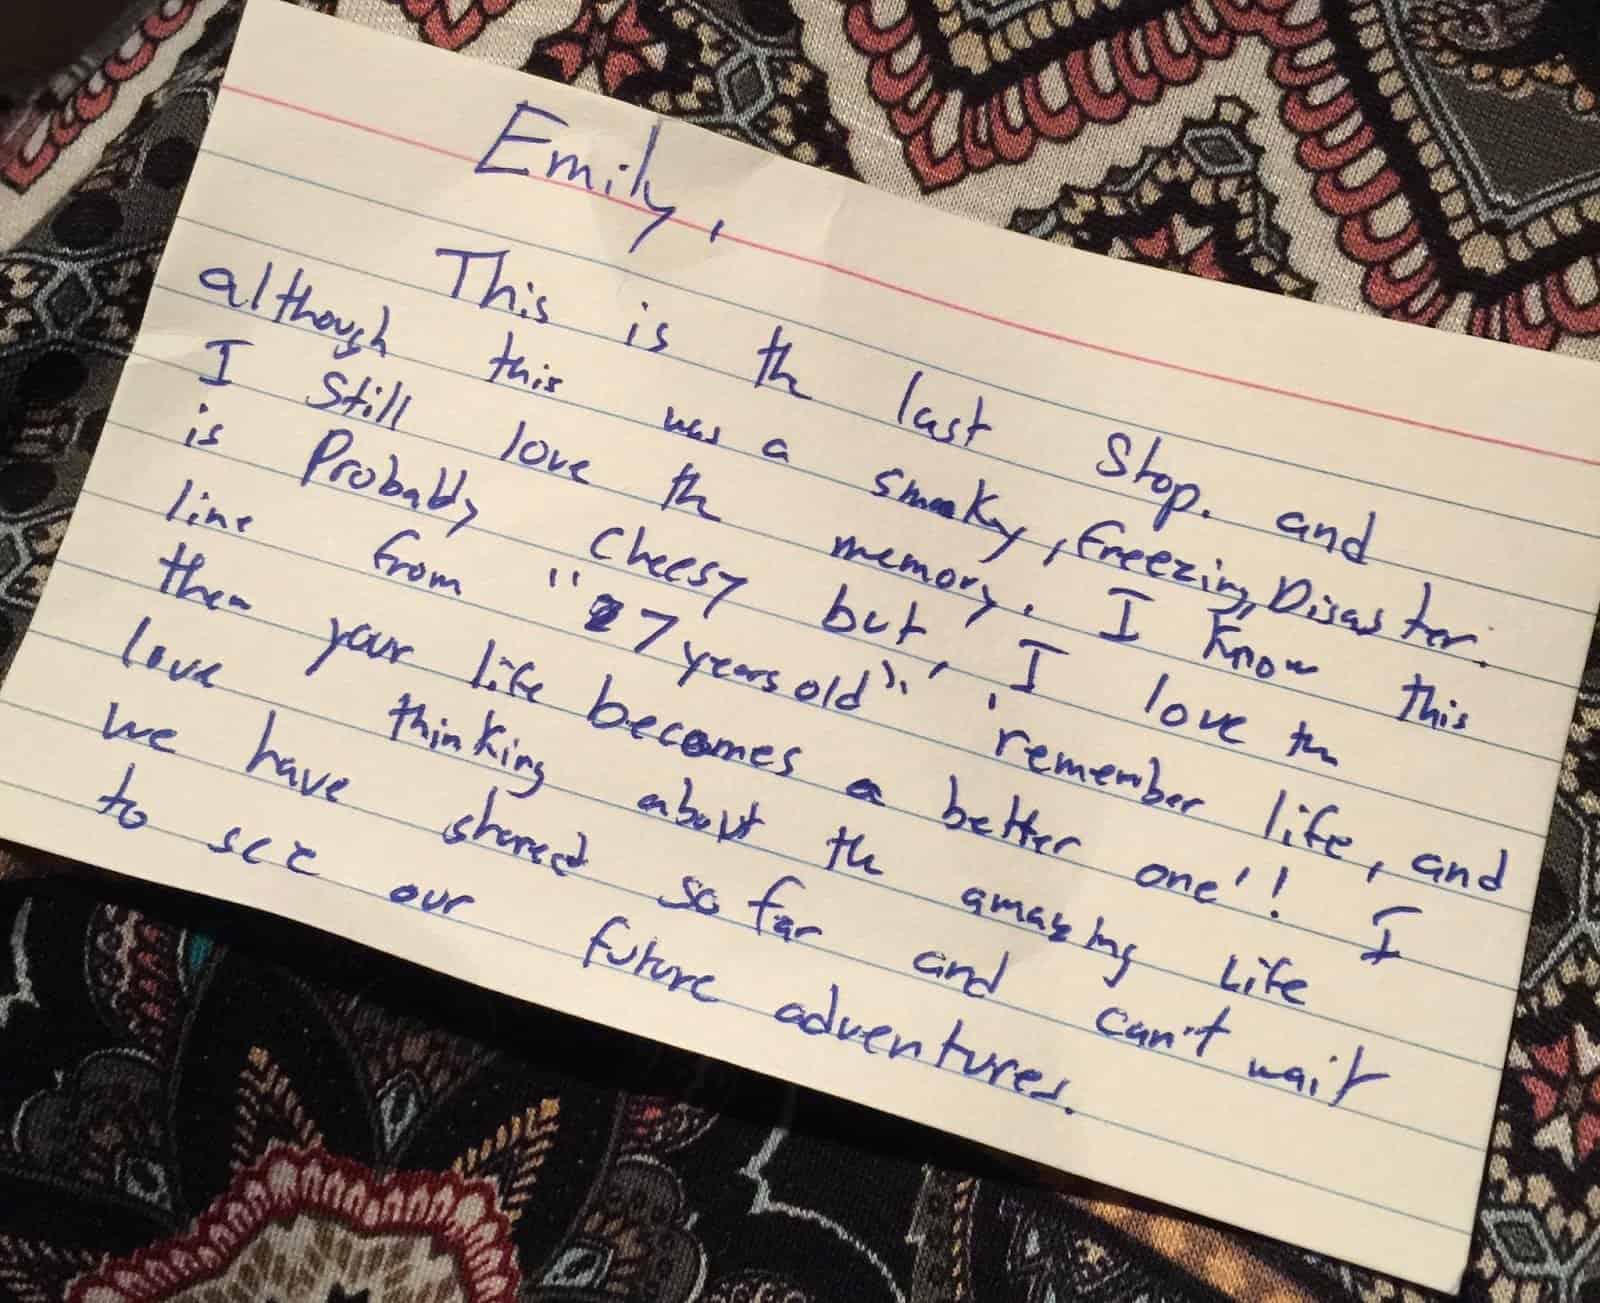 Emily,
This is the last Stop. and
although this was a smoky, freezing, Disaster.
I Still love the memory. I know this
is Probably cheesy but, I love the
line from "7 years old", 'remember life, and
then your life becomes a better one'! I
love thinking about the amazing Life
we have shared so far and can't wait
to see our future adventures.